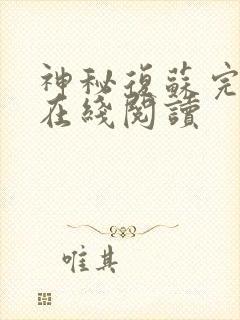 神秘復蘇完
在綫閱讀
唯其